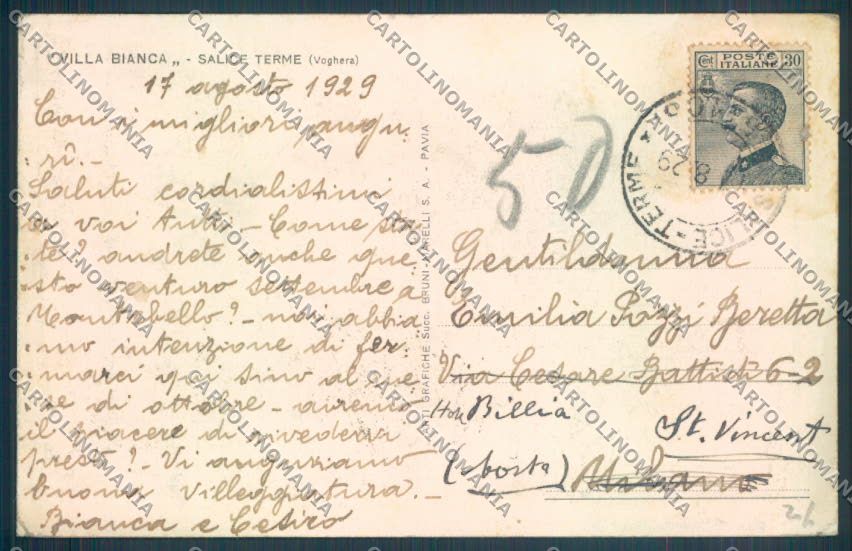 "VILLA BIANCA„ - SALICE TERME (Voghera)
17 agosto 1929
Con i migliori augu
ri.-
Saluti cordialissimi
a voi tutti - Come sta
te? andrete anche que
sto venturo settembre a
Montebello? - noi abbia
mo intenzione di fer
marci qui sino al me
se di ottobre - avremo
il piacere di rivedervi
presto? - Vi auguriamo
buona villeggiatura. -
Bianca e Cesiro
ARTI GRAFICHE Succ. BRUNI-MARELLI S. A. - PAVIA
50
POSTE
ITALIANE
Cent 30
SALICE-TERME
8 29
Gentildonna
Emilia Pozzi Beretta
Via Cesare Battisti 6-2
Milano
Hotel Billia
St. Vincent
(Aosta)
CARTOLINOMANIA